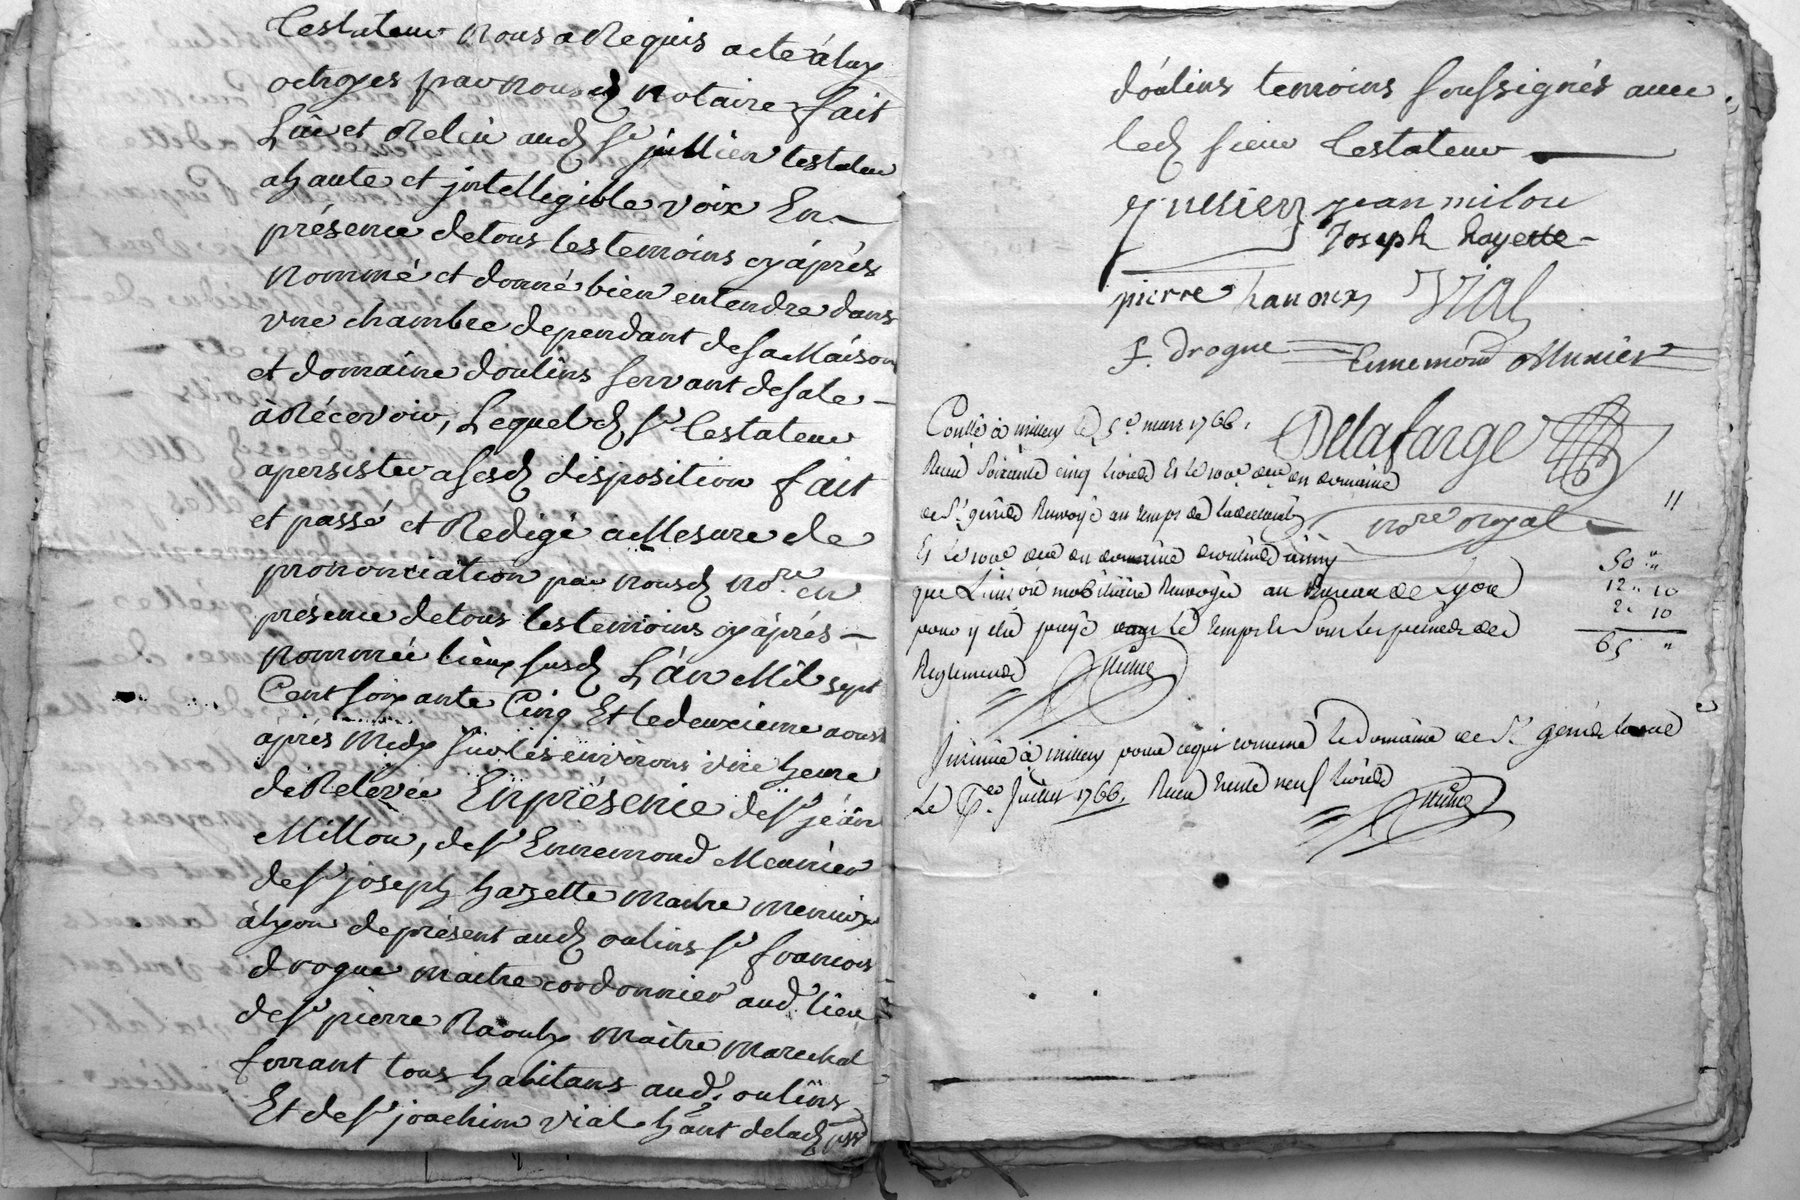 testateur nous a Requis acte à luy
octroyés par nousd notaire fait
Lû et Relu aud Sr jullien testateur
a haute et jntelligible voix En
présence de tous les temoins cy àprés
nommé et donné bien entendre dans
une chambre dependant de sa Maison
et domaine d'oulins servant de sale
à Récevoir, Lequel d Sr testateur
a persister a sesd disposition fait
et passé et Redigé a Mesure de
prononciation par nousd nore en
présence de tous les temoins cy àprés
nommée lieux susd L'an Mil sept
Cent soixante Cinq Et le deuxieme aoust
àprés Midy sur les environs une heure
de Relévée En présence de Sr jéan
Millou, de Sr Ennemond Meunier
de Sr joseph hayette maitre
à lyon de présent aud oulins Sr francois
drogue maitre cordonnier aud. lieu
de Sr pierre Raoulx maitre marechal
ferrant tous habitans aud. oulins
Et de Sr joachim vial hant delad
d'oulins temoins soussignés avec
led sieur testateur
jullien jean milou
Joseph hayette
pierre Vial
f. drogue Ennemond Munier
Conllé à millery le 5e mars 1766.
Delafarge
Receu soixante cinq livres Et le 100e den du domaine
de St genis Renvoyé au temps de
nore royal
11
Et le 100e den du domaine
50 "
que mobiliaire Renvoyé au Bureau de Lyon
12 " 10
pour y etre payé le temps Sous les peines des
2 " 10
65 "
Reglements
à millery pour ce qui concerne le domaine de St genis laval
Le Juillet 1766. Receu trente neuf livres